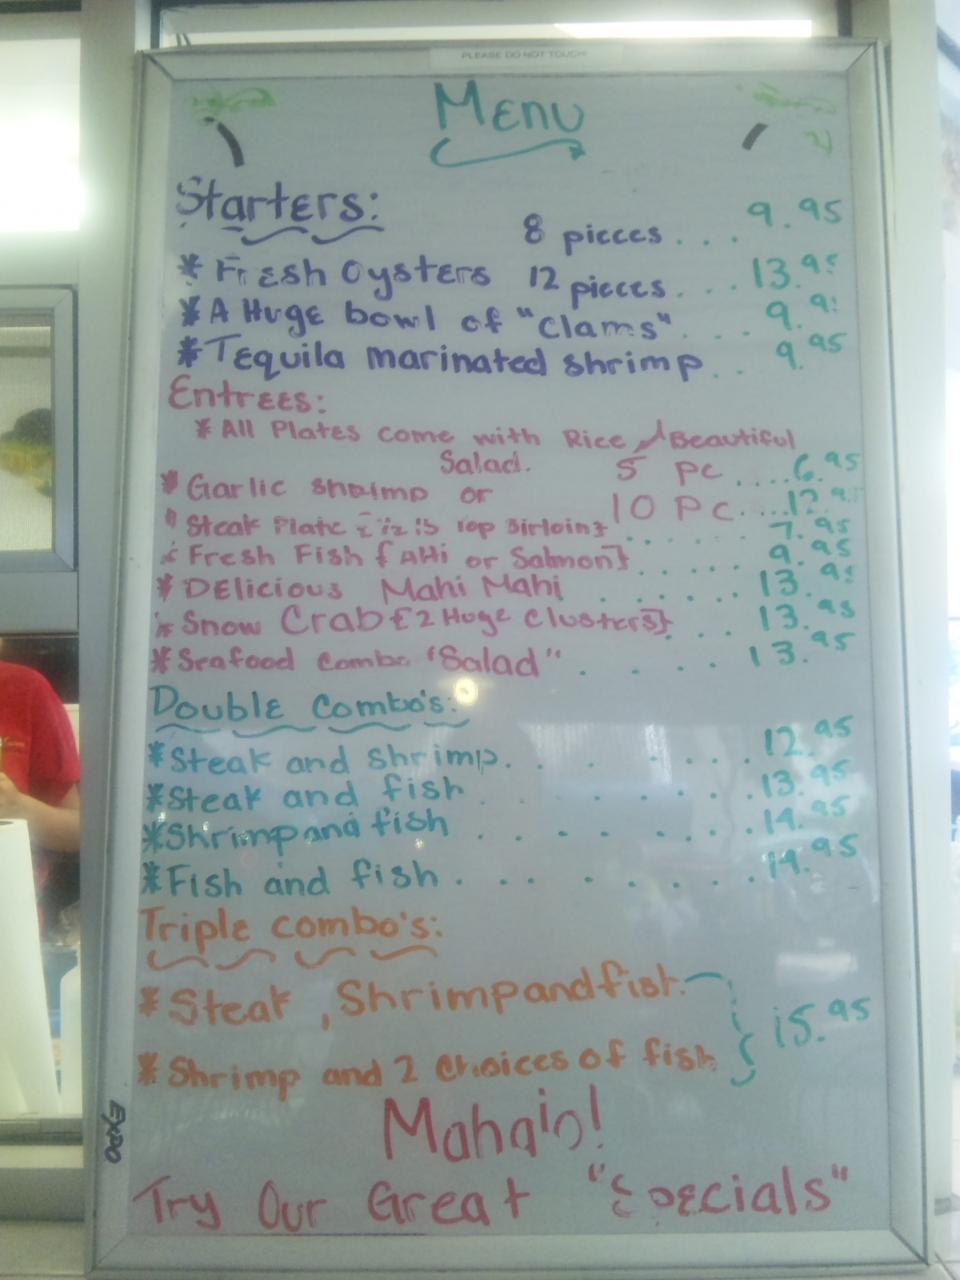 PLEASE DO NOT TOUCH!
Menu
Starters:
8 pieces . . . 9.95
* Fresh Oysters 12 pieces . . . 13.95
* A Huge bowl of "Clams" . . . 9.9
* Tequila marinated shrimp . . . 9.95
Entrees:
* All Plates come with Rice / Beautiful
Salad.
5 pc ....6.95
* Garlic shrimp or
10 Pc ....12.9
* Steak Plate { Top Sirloin} . . . . . . 7.95
* Fresh Fish {AHi or Salmon} . . . . . . 9.95
* Delicious Mahi Mahi . . . . . . 13.95
* Snow Crab {2 Huge Clusters} . . . 13.95
* Seafood Combo "Salad" . . . . . 13.95
Double Combo's:
* Steak and shrimp. . . . . . 12.95
* Steak and fish . . . . . . . . 13.95
* Shrimp and fish . . . . . . . . 14.95
* Fish and fish . . . . . . . . 14.95
Triple combo's:
* Steak, Shrimp and fish.
} 15.95
* Shrimp and 2 Choices of fish
Mahain!
Try Our Great "Specials"
EXPO